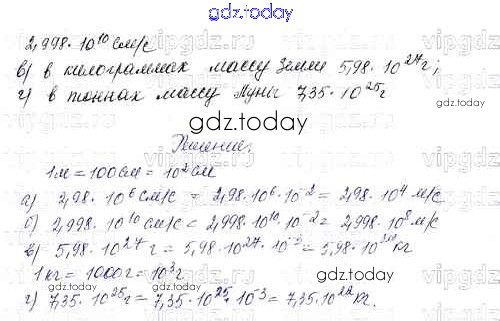 gdz.today
2,998 · 10¹⁰ см/с
в) в килограммах массу Земли 5,98 · 10²⁷ г;
г) в тоннах массу Луны 7,35 · 10²⁵ г
gdz.today
Решение.
1 м = 100 см = 10² см
а) 2,98 · 10⁶ см/с = 2,98 · 10⁶ · 10⁻² = 2,98 · 10⁴ м/с
б) 2,998 · 10¹⁰ см/с = 2,998 · 10¹⁰ · 10⁻² = 2,998 · 10⁸ м/с
в) 5,98 · 10²⁷ г = 5,98 · 10²⁷ · 10⁻³ = 5,98 · 10 кг
1 кг = 1000 г = 10³ г
gdz.today
г) 7,35 · 10²⁵ г = 7,35 · 10²⁵ · 10⁻³ = 7,35 · 10²² кг.
gdz.today